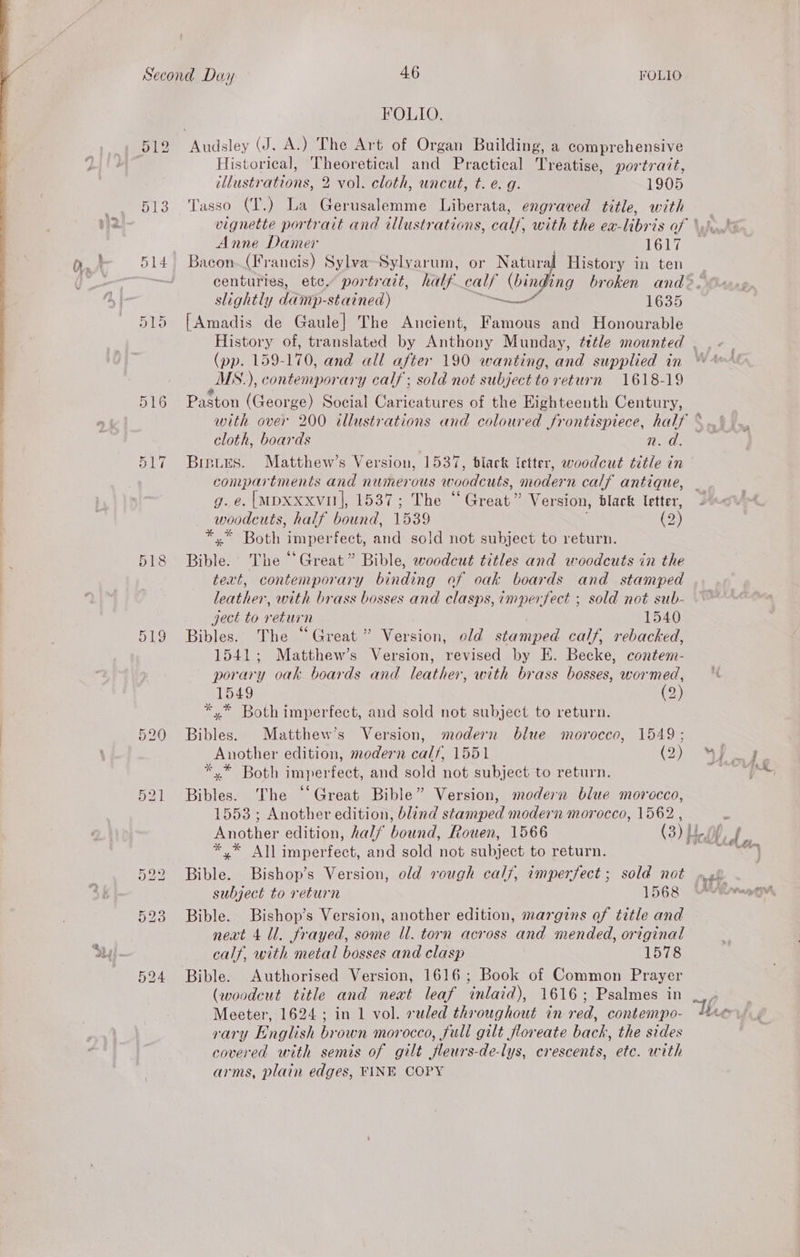 Second Day 46 FOLIO
FOLIO.
512 Audsley (J. A.) The Art of Organ Building, a comprehensive
Historical, Theoretical and Practical Treatise, portrait,
illustrations, 2 vol. cloth, uncut, t. e. g. 1905
513 Tasso (T.) La Gerusalemme Liberata, engraved title, with
vignette portrait and illustrations, calf, with the ex-libris of
Anne Damer 1617
514 Bacon (Francis) Sylva Sylvarum, or Natural History in ten
centuries, etc. portrait, half calf (binding broken and
slightly damp-stained) 1635
515 [Amadis de Gaule] The Ancient, Famous and Honourable
History of, translated by Anthony Munday, title mounted
(pp. 159-170, and all after 190 wanting, and supplied in
MS.), contemporary calf; sold not subject to return 1618-19
516 Paston (George) Social Caricatures of the Eighteenth Century,
with over 200 illustrations and coloured frontispiece, half
cloth, boards n. d.
517 BIBLES. Matthew's Version, 1537, black letter, woodcut title in
compartments and numerous woodcuts, modern calf antique,
g. e. [MDXXXVII], 1537; The "Great" Version, black letter,
woodcuts, half bound, 1539 (2)
*** Both imperfect, and sold not subject to return.
518 Bible. The "Great" Bible, woodcut titles and woodcuts in the
text, contemporary binding of oak boards and stamped
leather, with brass bosses and clasps, imperfect; sold not sub-
ject to return 1540
519 Bibles. The "Great" Version, old stamped calf, rebacked,
1541; Matthew's Version, revised by E. Becke, contem-
porary oak boards and leather, with brass bosses, wormed,
1549 (2)
*** Both imperfect, and sold not subject to return.
520 Bibles. Matthew's Version, modern blue morocco, 1549;
Another edition, modern calf, 1551 (2)
*** Both imperfect, and sold not subject to return.
521 Bibles. The "Great Bible" Version, modern blue morocco,
1553; Another edition, blind stamped modern morocco, 1562,
Another edition, half bound, Rouen, 1566 (3)
*** All imperfect, and sold not subject to return.
522 Bible. Bishop's Version, old rough calf, imperfect; sold not
subject to return 1568
523 Bible. Bishop's Version, another edition, margins of title and
next 4 ll. frayed, some ll. torn across and mended, original
calf, with metal bosses and clasp 1578
524 Bible. Authorised Version, 1616; Book of Common Prayer
(woodcut title and next leaf inlaid), 1616; Psalmes in
Meeter, 1624; in 1 vol. ruled throughout in red, contempo-
rary English brown morocco, full gilt floreate back, the sides
covered with semis of gilt fleurs-de-lys, crescents, etc. with
arms, plain edges, FINE COPY